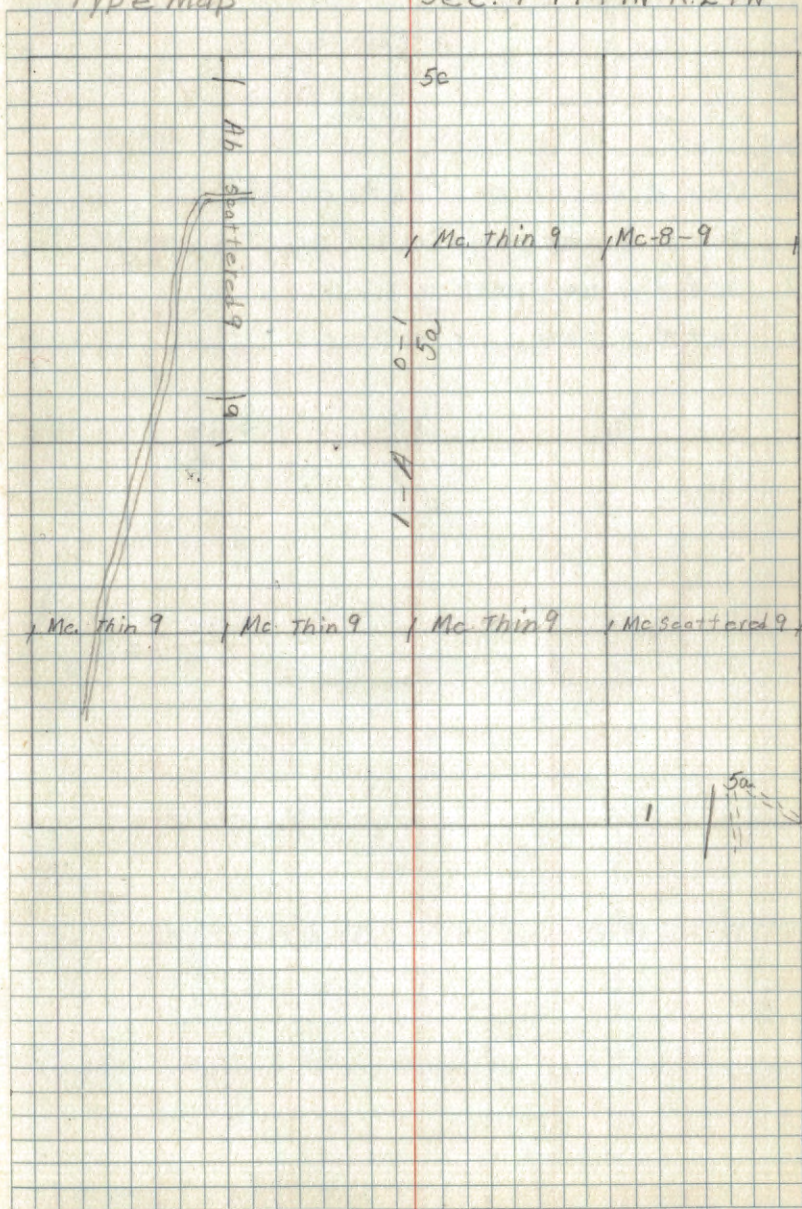 Type Map
5c
Ah Scattered 9
Mc. Thin 9
Mc-8-9
0-1
5a
9
1-A
Mc. Thin 9
Mc. Thin 9
Mc. Thin 9
Mc Scattered 9
5a
1